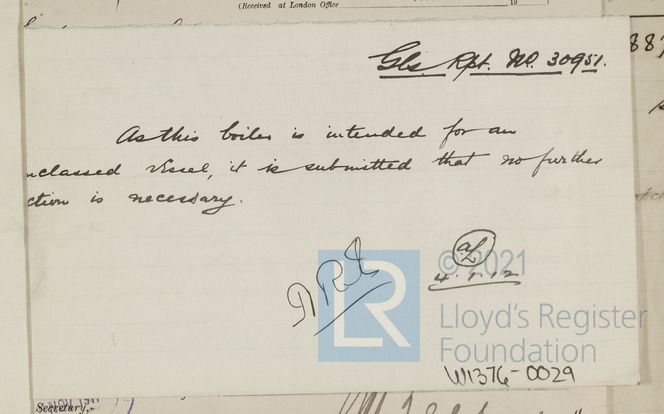 (Received at London Office 19
Gls. Rpt. No. 30951.
As this boiler is intended for an
nclassed vessel, it is submitted that no further
ction is necessary.
4.1.12
LR
© 2021
Lloyd's Register
Foundation
W1376-0029
Secretary,-